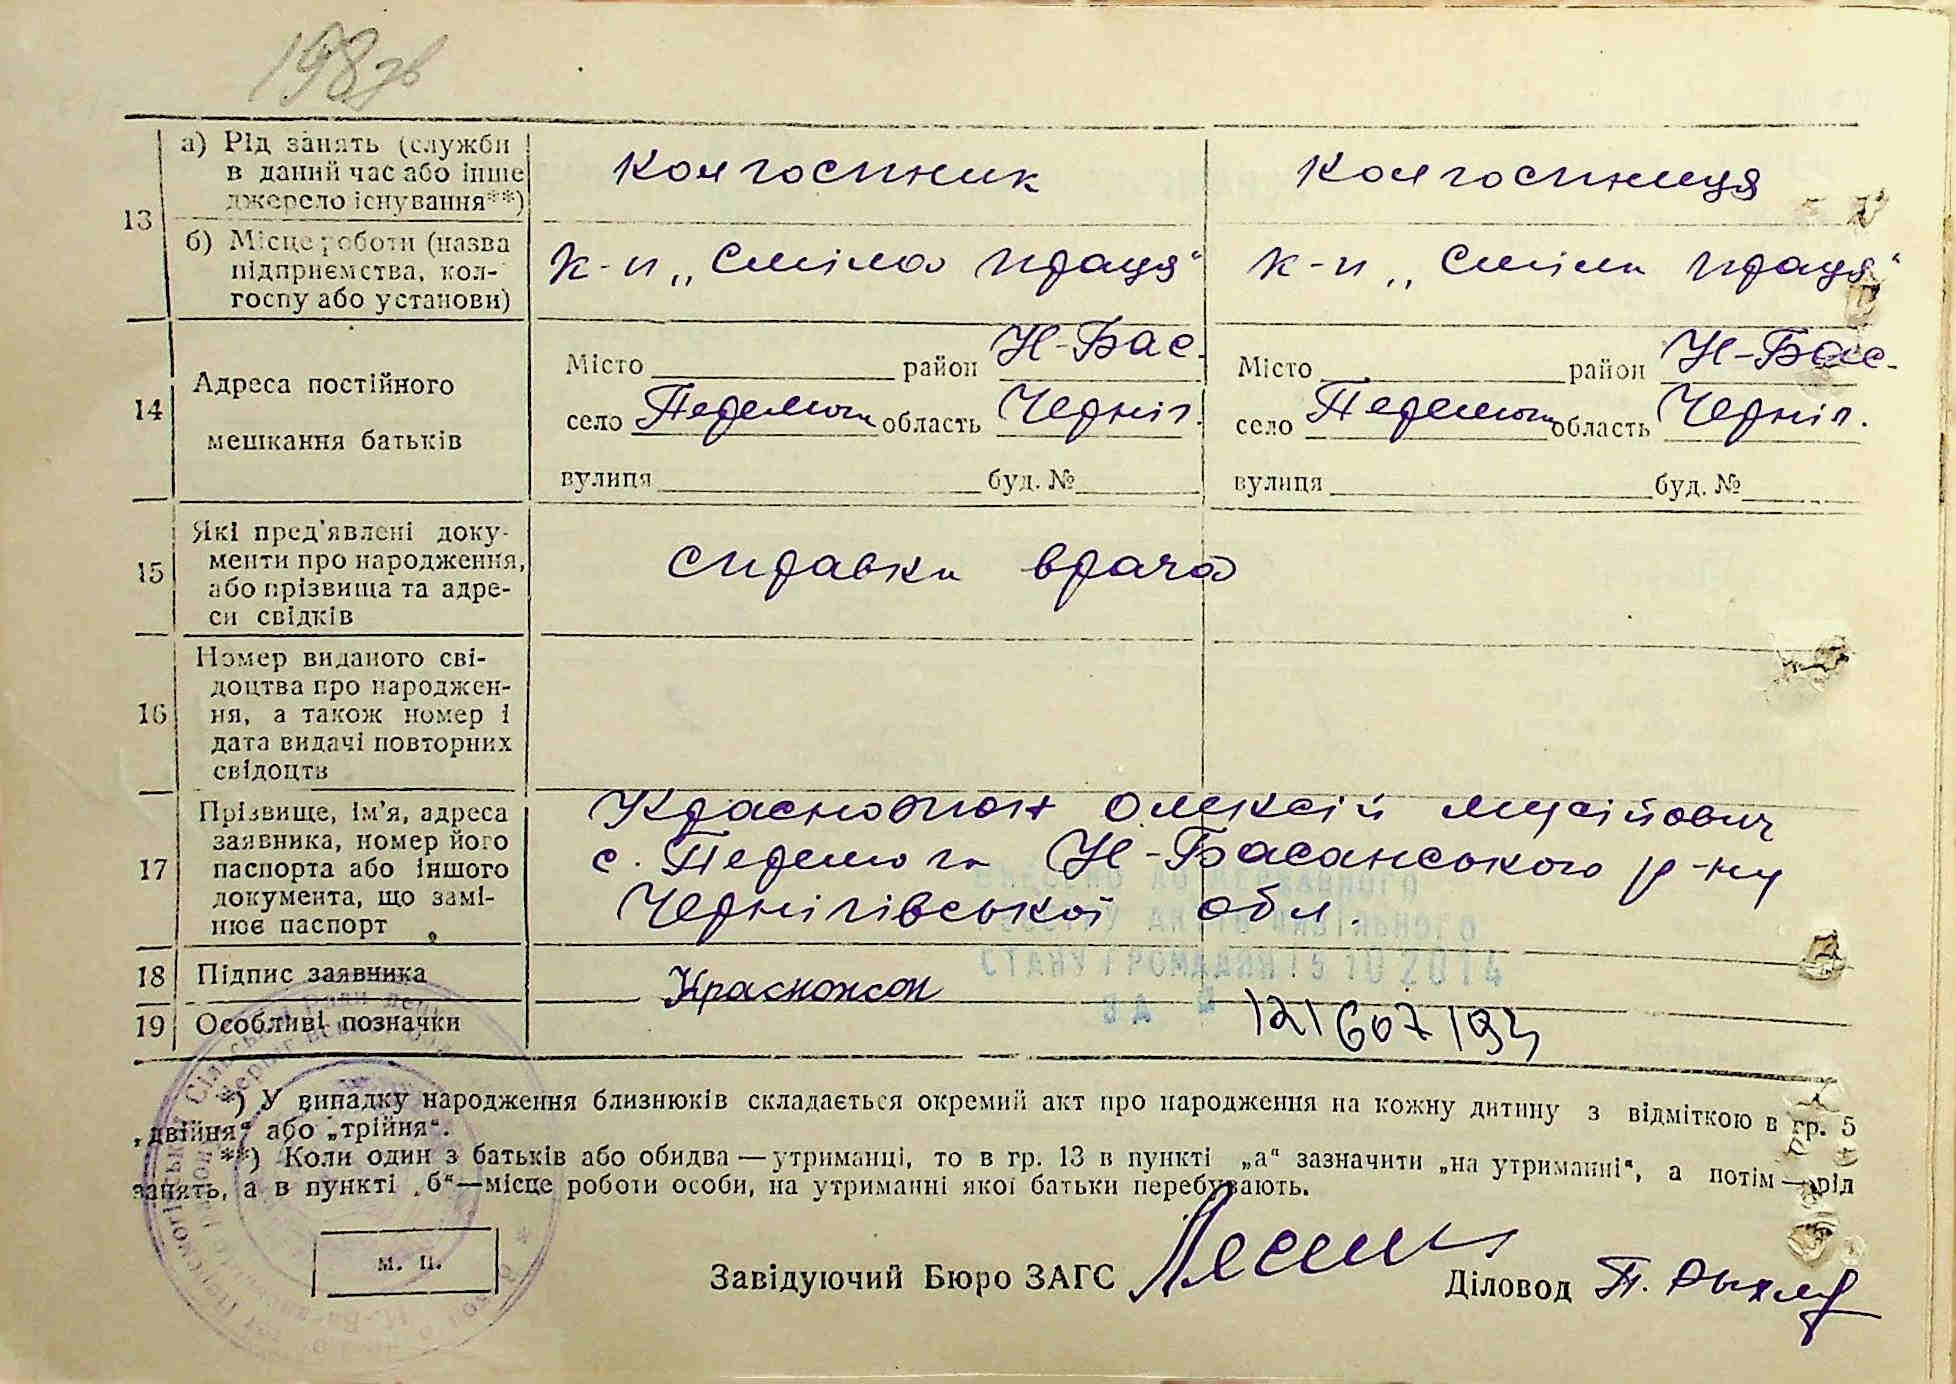 198зв
13 а) Рід занять (служби в даний час або інше джерело існування**) Колгоспник Колгоспниця
б) Місце роботи (назва підприємства, колгоспу або установи) к-п „Сміла праця“ к-п „Сміла праця“
14 Адреса постійного мешкання батьків
Місто район Н-Бас. Місто район Н-Бас.
село Перемога область Черніг. село Перемога область Черніг.
вулиця буд. № вулиця буд. №
15 Які пред'явлені документи про народження, або прізвища та адреси свідків справка врача
16 Номер виданого свідоцтва про народження, а також номер і дата видачі повторних свідоцтв
17 Прізвище, ім'я, адреса заявника, номер його паспорта або іншого документа, що замінює паспорт
Красножон Олексій Мусійович
с. Перемога Н-Басанського р-ну
Чернігівської обл.
ВНЕСЕНО ДО ДЕРЖАВНОГО
РЕЄСТРУ АКТІВ ЦИВІЛЬНОГО
СТАНУ ГРОМАДЯН 15 10 2014
ЗА №
18 Підпис заявника Красножон
19 Особливі позначки 121607193
*) У випадку народження близнюків складається окремий акт про народження на кожну дитину з відміткою в гр. 5
„двійня“ або „трійня“.
**) Коли один з батьків або обидва — утриманці, то в гр. 13 в пункті „а“ зазначити „на утриманні“, а потім — рід
занять, а в пункті „б“—місце роботи особи, на утриманні якої батьки перебувають.
м. п.
Завідуючий Бюро ЗАГС Діловод П.